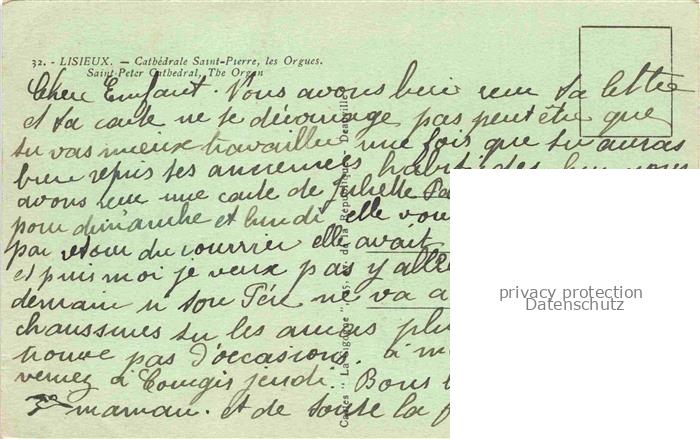 32. - LISIEUX. — Cathédrale Saint-Pierre, les Orgues.
Saint Peter Cathedral, The Organ
Cher Enfant. Vous avons bien reçu ta lettre
et ta carte ne te décourage pas peut être que
tu vas mieux travailler une fois que tu auras
bien repris tes anciennes habitudes
avons reçu une carte de Juliette
pour dimanche et lundi elle
par retour du courrier elle avait
et puis moi je veux pas y
demain ton Père ne va
chaussures tu les auras
trouve pas d'occasions. à
venez à Courgis jeudi. Bons
maman. et de toute la
Cartes "La Cigogne" de la République, Deauville
privacy protection
Datenschutz